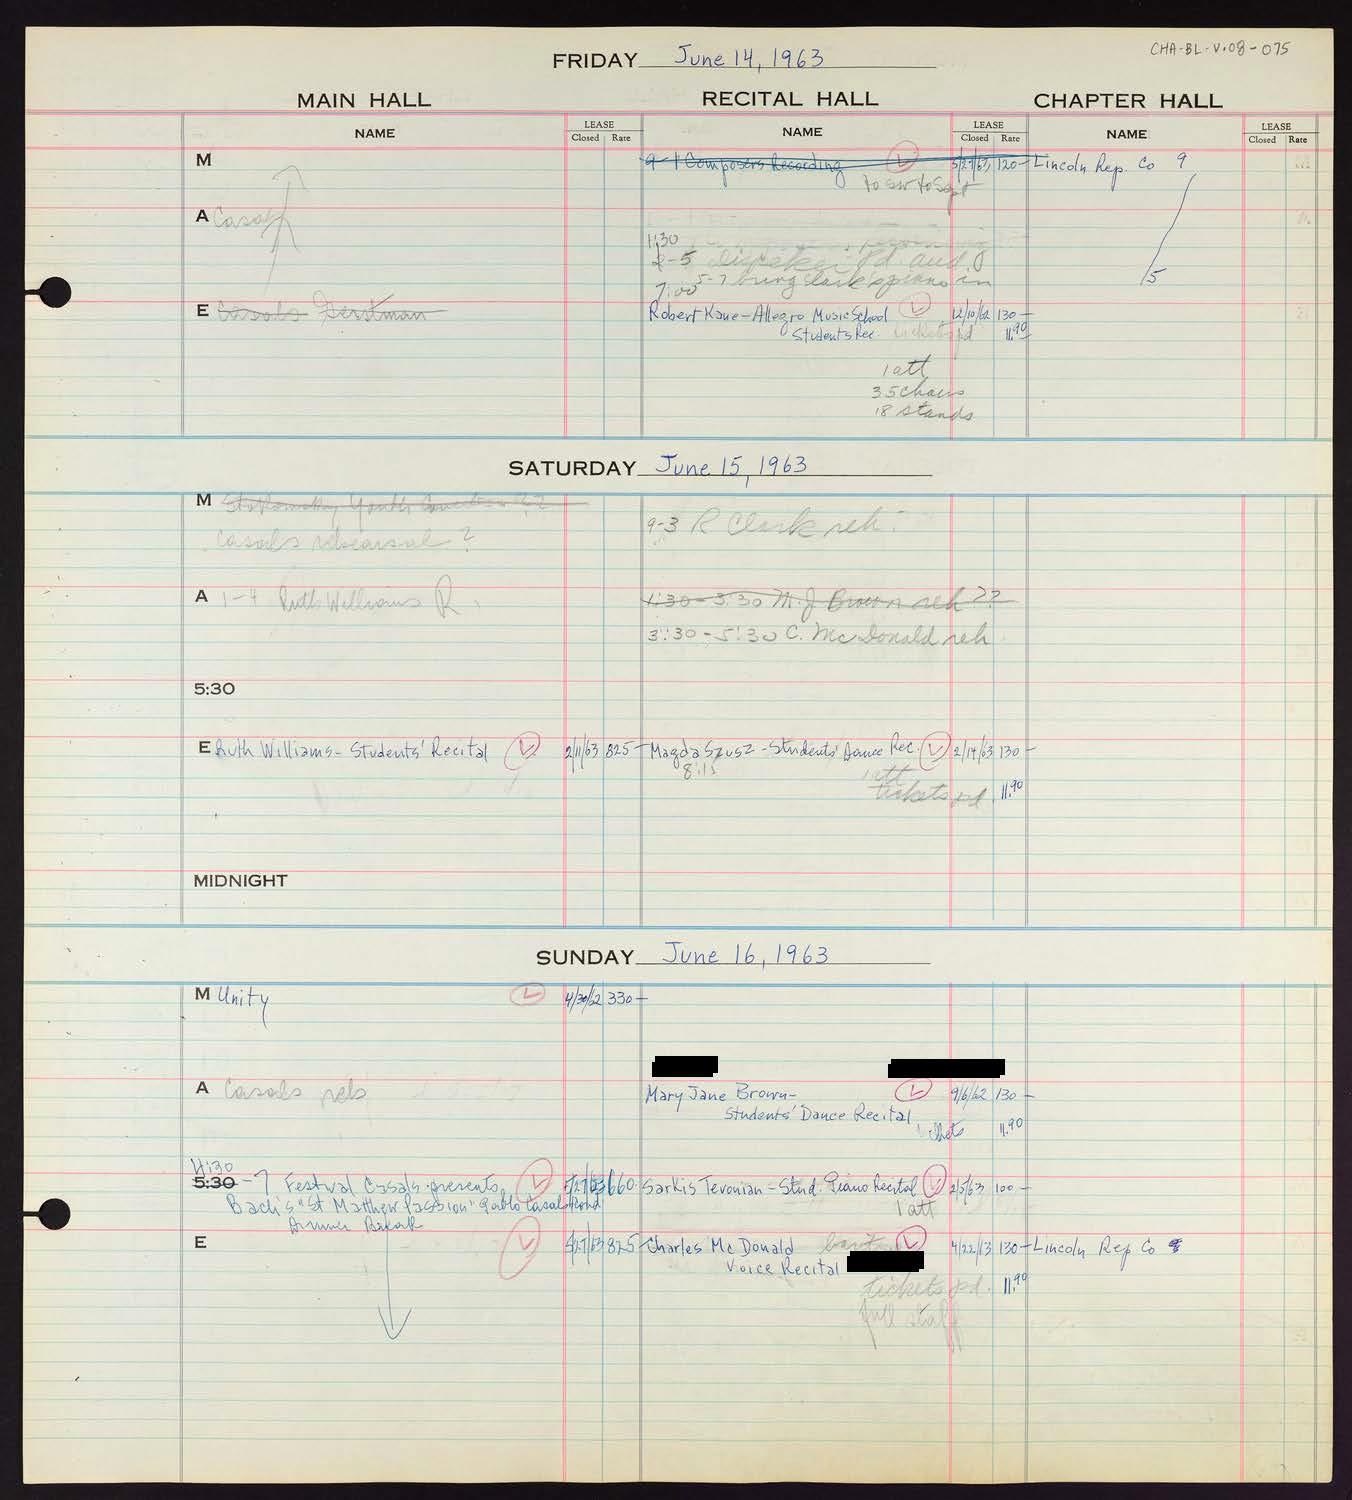 CHA-BL-V.08-075
FRIDAY June 14, 1963
MAIN HALL RECITAL HALL CHAPTER HALL
NAME LEASE Closed Rate NAME LEASE Closed Rate NAME LEASE Closed Rate
M 9-1 Composers Recording L 5/27/63 120- Lincoln Rep. Co 9
to Sept
A Casals
1:30
2-5
5-7 bring Clark's piano in 5
7:00
E Casals Gerstman Robert Kane-Allegro Music School L 12/10/62 130-
Students Rec. tickets pd 11.90
1 att
35 chairs
18 stands
SATURDAY June 15, 1963
M Stokowski Youth Concert ??
9-3 R Clark reh.
Casals rehearsal ?
A 1-4 Ruth Williams R. 1:30-3:30 M.J Brown reh ??
3:30-5:30 C. McDonald reh
5:30
E Ruth Williams- Students' Recital L 2/11/63 825- Magda Szusz-Students' Dance Rec. L 2/14/63 130-
8:15 1 att
tickets pd. 11.90
MIDNIGHT
SUNDAY June 16, 1963
M Unity L 4/30/62 330-
A Casals reh Mary Jane Brown- L 9/6/62 130-
Students' Dance Recital
tickets 11.90
4:30
5:30 -7 Festival Casals presents L 5/27/63 660- Sarkis Tevonian-Stud. Piano Recital L 2/5/63 100-
Bach's "St Matthew Passion" Pablo Casals 1 att
Dinner Break
E L 5/27/63 825- Charles McDonald L 4/22/63 130- Lincoln Rep Co 8
Voice Recital
tickets pd. 11.90
full staff